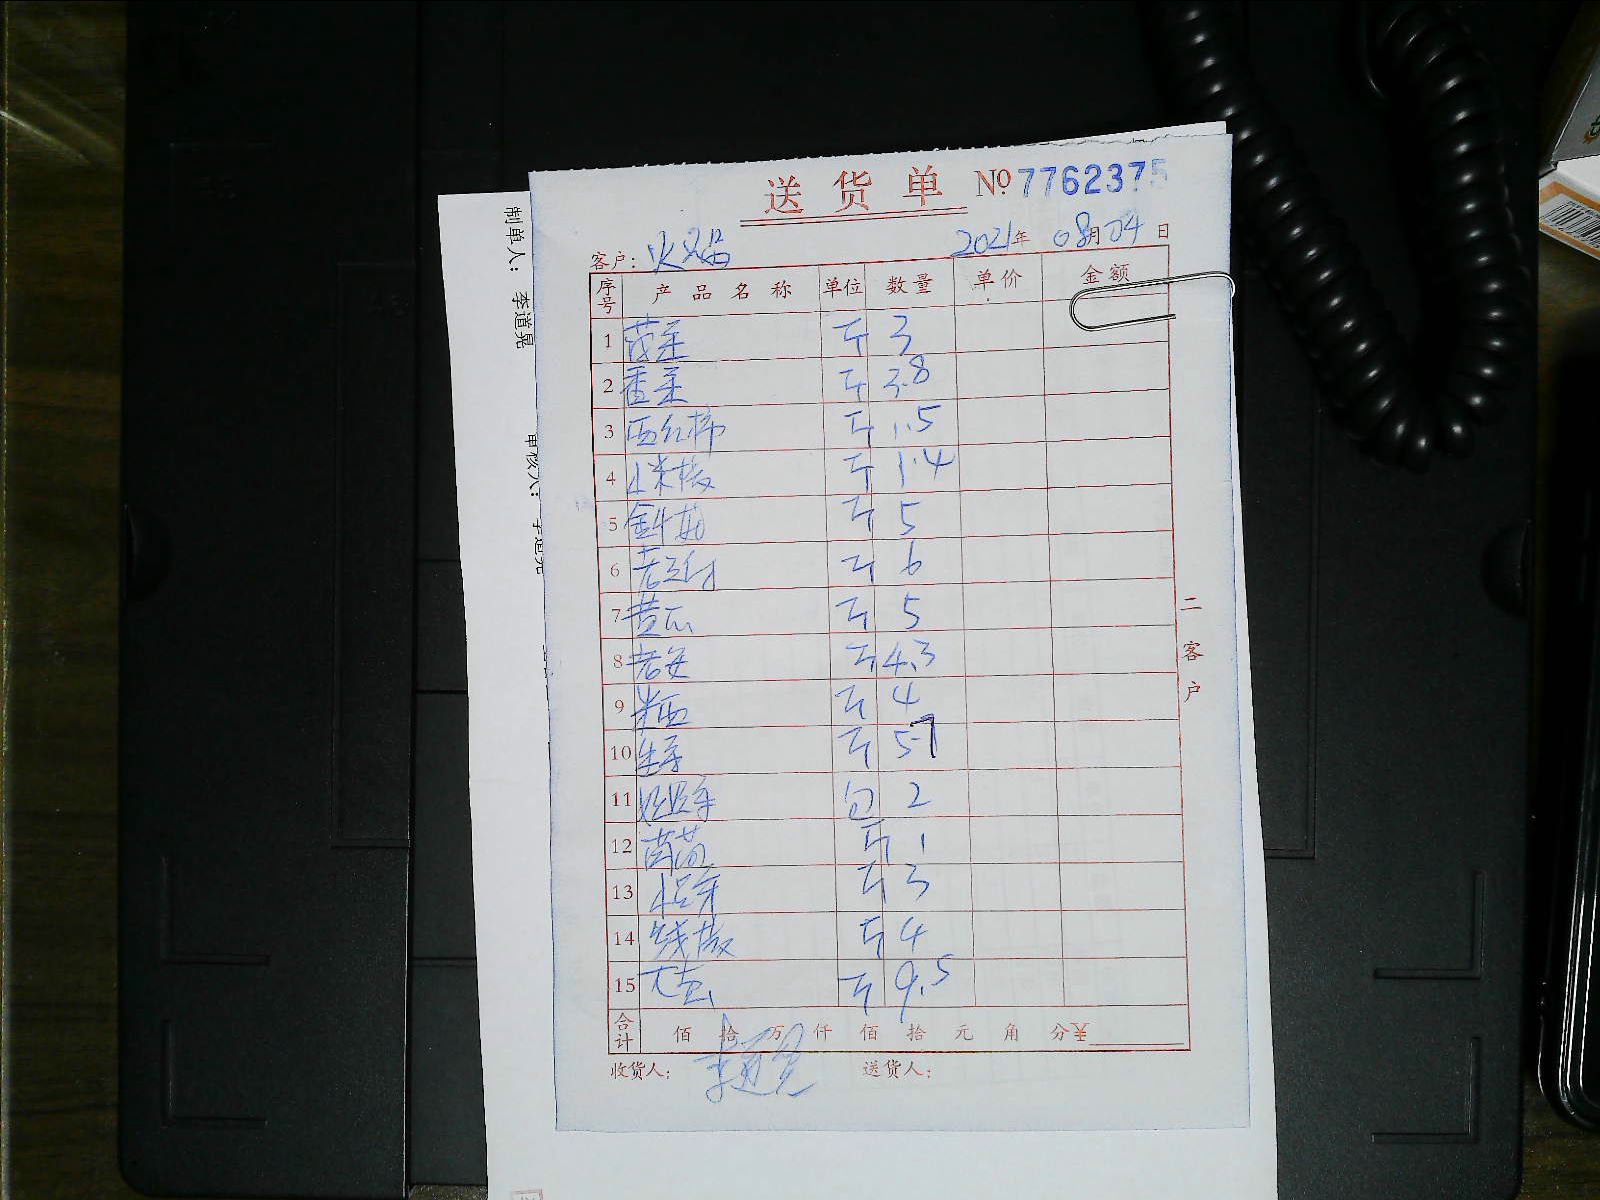 送货单 № 7762375
客户: 火焰 2021年 08月 04日
序号 产品名称 单位 数量 单价 金额
1 菠菜 斤 3
2 香菜 斤 3.8
3 西红柿 斤 1.5
4 小米椒 斤 1.4
5 斤 5
6 斤 6
7 黄瓜 斤 5
8 斤 4.3
9 斤 4
10 生菜 斤 5.7
11 包 2
12 斤 1
13 小芽 斤 3
14 线椒 斤 4
15 大葱 斤 9.5
合计 佰 拾 万 仟 佰 拾 元 角 分 ¥
收货人: 李道晃 送货人:
二客户
制单人: 李道晃
审核人: 李道晃